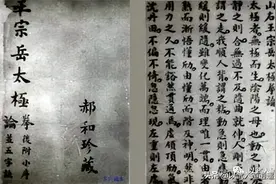 王宗岳太極
拳後附小序
論並五字訣
郝和珍藏
山右王宗岳太極拳論
太極者無極而生陰陽之母也動之則分
靜之則合無過不及隨曲就伸人剛我柔
謂之走我順人背謂之粘動急則急應動
緩則緩隨雖變化萬端而理惟一貫由着
熟而漸悟懂勁由懂勁而階及神明然非
用力之久不能豁然貫通焉虛領頂勁氣
沉丹田不偏不倚忽隱忽現左重則左